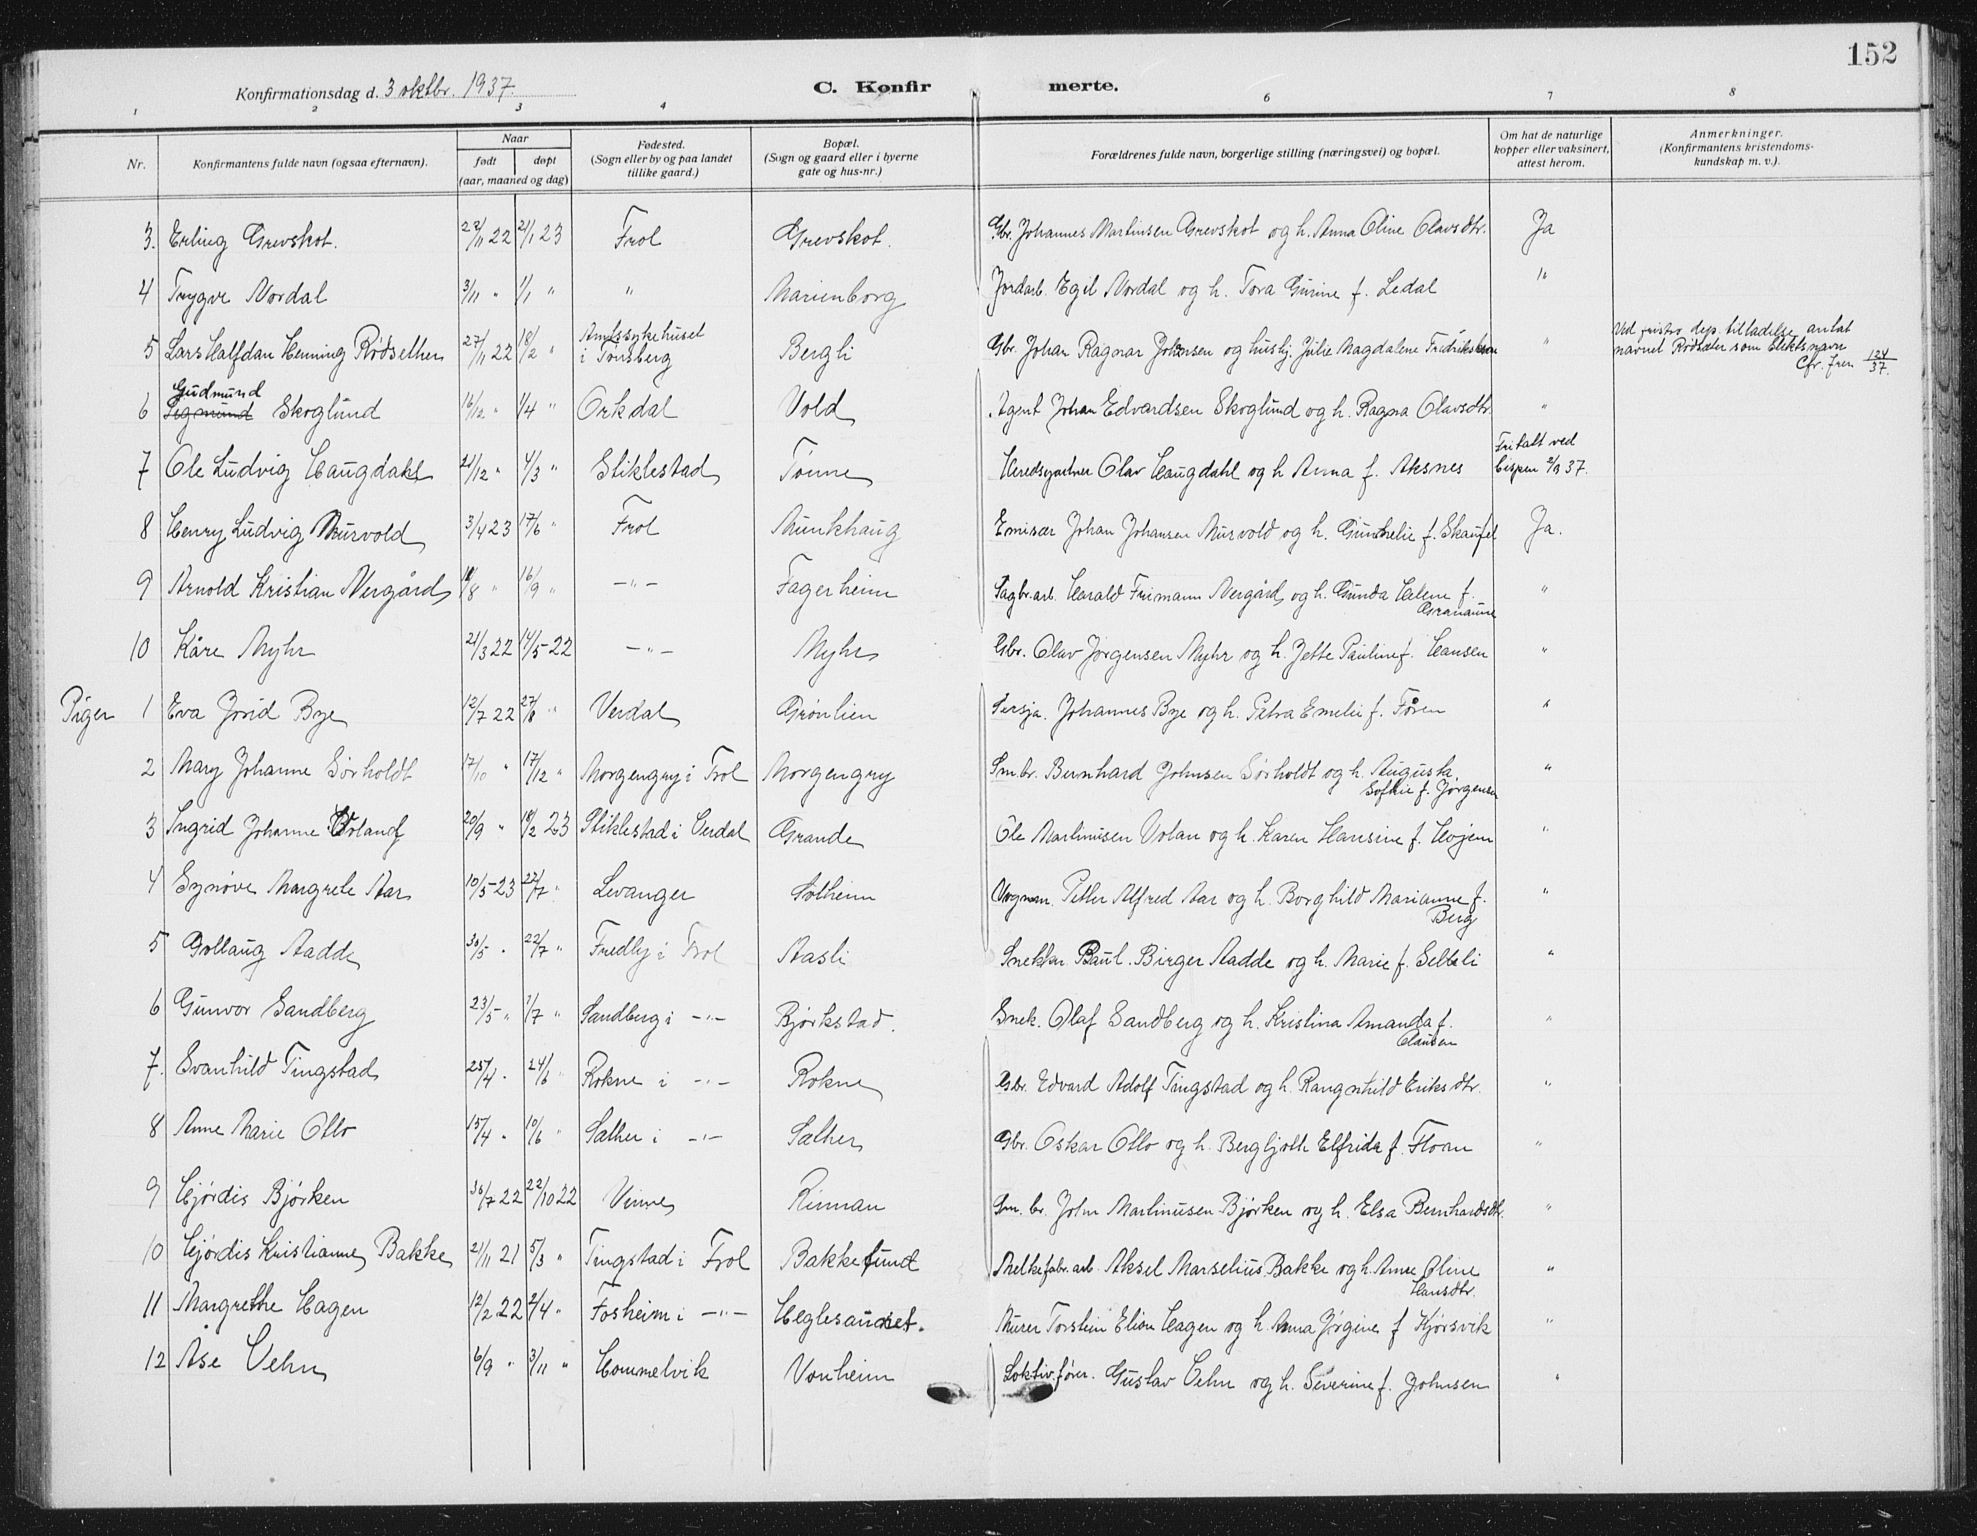 152
Konfirmationsdag d. 3 oktbr. 1937.
C. Konfirmerte.
1 2 3 4 6 7 8
Nr.
Konfirmantens fulde navn (ogsaa efternavn).
Naar
født døpt
(aar, maaned og dag)
Fødested.
(Sogn eller by og paa landet
tillike gaard.)
Bopæl.
(Sogn og gaard eller i byerne
gate og hus-nr.)
Forældrenes fulde navn, borgerlige stilling (næringsvei) og bopæl.
Om hat de naturlige
kopper eller vaksinert,
attest herom.
Anmerkninger.
(Konfirmantens kristendoms-
kundskap m. v.).
3. Erling Grevskot. 22/11 22 21/1 23 Frol Grevskot. Gbr. Johannes Martinsen Grevskot og h. Anna Oline Olavsdtr. Ja
4 Trygve Nordal 3/11 " 1/1 " " Marienborg Jordarb. Egil Nordal og h. Tora Gurine f. Ledal "
5 Lars Halfdan Henning Rødsether 27/11 22 18/2 " Amtssykehuset
i Tønsberg Bergli Gbr. Johan Ragnar Johansen og hustj. Julie Magdalene Fredriksen "
Ved justis dep. tilladelse antat
navnet Rødsæter som slektsnavn
Cfr. jrn 124/37.
6 Gudmund
Sigmund Skoglund 16/12 " 1/4 " Orkdal Vold Agent Johan Edvardsen Skoglund og h. Ragna Olavsdtr. "
7 Ole Ludvig Haugdahl 21/12 " 4/3 " Stiklestad Tønne Heredsgartner Olav Haugdahl og h Anna f. Aksnes Fritatt ved
bispen 2/9 37.
8 Henry Ludvig Murvold 3/4 23 17/6 " Frol Munkhaug Emisær Johan Johansen Murvold og h. f. Ja.
9 Arnold Kristian Nergård 18/8 " 16/9 " -"- Fagerheim Sagbr.arb. Harald Frimann Nergård og h. Gunda Helene f.
Granaune "
10 Kåre Myhr 21/3 22 14/5-22 -"- Myhr Gbr. Olav Jørgensen Myhr og h. Jette Pauline f. Hansen "
Piger 1 Eva Jorid Bye 12/7 22 27/8 " Verdal Grønlien Sersja. Johannes Bye og h. Petra Emelie f. Føren "
2 Mary Johanne Sørholdt 17/10 " 17/12 " Morgengry i Frol Morgengry Smbr. Bernhard Johnsen Sørholdt og h. Augusta
Sofhie f. Jørgensen "
3 Ingrid Johanne Voland 20/9 " 18/2 23 Stiklestad i Verdal Grande Ole Martinusen Volan og h. Karen Hansine f. Hojem "
4 Synøve Margrete Aar 10/5-23 22/7 " Levanger Solheim Vognm. Petter Alfred Aar og h. Borghild Marianne f.
Berg "
5 Gollaug Aadde 30/5 . 22/7 " Fredly i Frol Aasli Snekker Paul Birger Aadde og h. Marie f. Selleli "
6 Gunvor Sandberg 23/5 " 1/7 " Sandberg i -"- Bjørkstad. Snek. Olaf Sandberg og h. Kristina Amanda f.
Clausen "
7. Svanhild Tingstad 25/4 . 24/6 " Rokne i -"- Rokne Gbr. Edvard Adolf Tingstad og h. Rangnhild Eriksdtr. "
8 Anne Marie Otlo 15/4 " 10/6 " Sæther i -"- Sæther Gbr. Oskar Otlo og h. Bergljoth Elfrida f. Floan "
9 Hjørdis Bjørken 30/7 22 22/10 22 Vinne Rinnan Sm. br. John Martinusen Bjørken og h. Elsa Bernhardsdtr. "
10 Hjørdis Kristianne Bakke 21/11 21 5/3 " Tingstad i Frol Bakkelund Melkefabr. arb. Aksel Marselius Bakke og h. Anne Oline
Hansdtr. "
11 Margrethe Hagen 12/2 22 2/4 " Fosheim i -"- Heglesaunet. Murer Torstein Elian Hagen og h. Anna Jørgine f Hjørsvik "
12 Åse Vehn 6/9 " 3/11 " Hommelvik Vonheim Loktiv.fører. Gustav Vehn og h. Severine f. Johnsen "